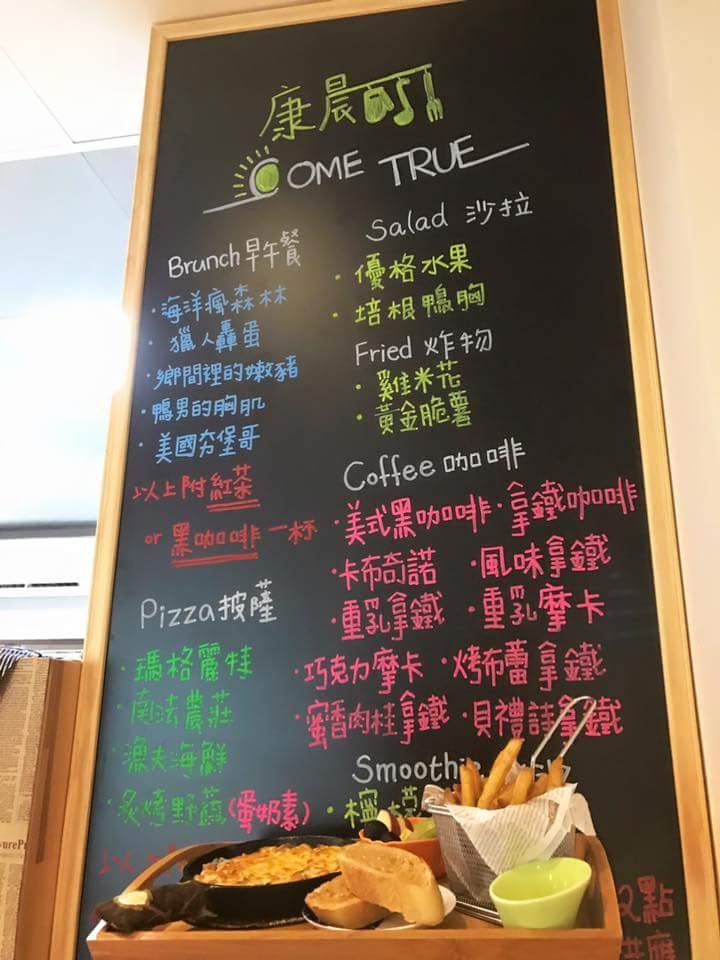 康晨
COME TRUE
Brunch早午餐
・海洋瘋森林
・獵人轟蛋
・鄉間裡的嫩豬
・鴨男的胸肌
・美國夯堡哥
以上附紅茶
or 黑咖啡一杯
Pizza披薩
・瑪格麗特
・南法農莊
・漁夫海鮮
・炙烤野蔬(蛋奶素)
以上
Salad 沙拉
・優格水果
・培根鴨胸
Fried 炸物
・雞米花
・黃金脆薯
Coffee 咖啡
・美式黑咖啡・拿鐵咖啡
・卡布奇諾 ・風味拿鐵
・重乳拿鐵 ・重乳摩卡
・巧克力摩卡 ・烤布蕾拿鐵
・蜜香肉桂拿鐵 ・貝禮詩拿鐵
Smoothie
・檸檬
點